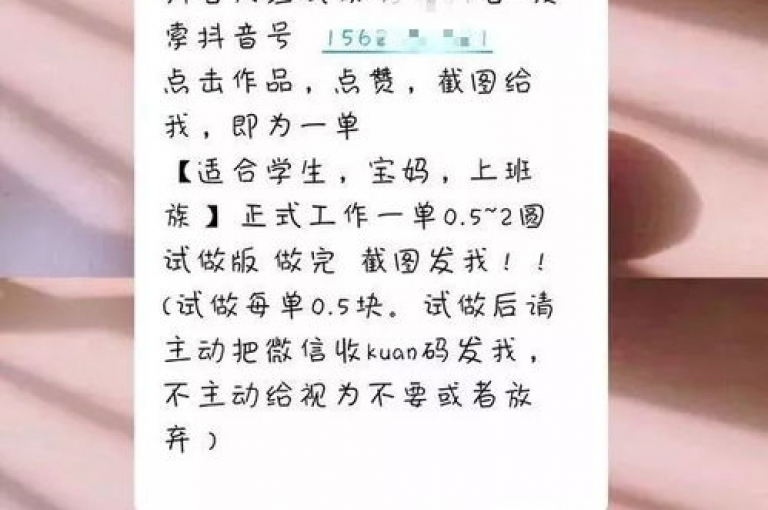 索抖音号 1562
点击作品，点赞，截图给
我，即为一单
【适合学生，宝妈，上班
族】正式工作一单0.5~2圆
试做版 做完 截图发我！！
(试做每单0.5块。试做后请
主动把微信收kuan码发我，
不主动给视为不要或者放
弃)